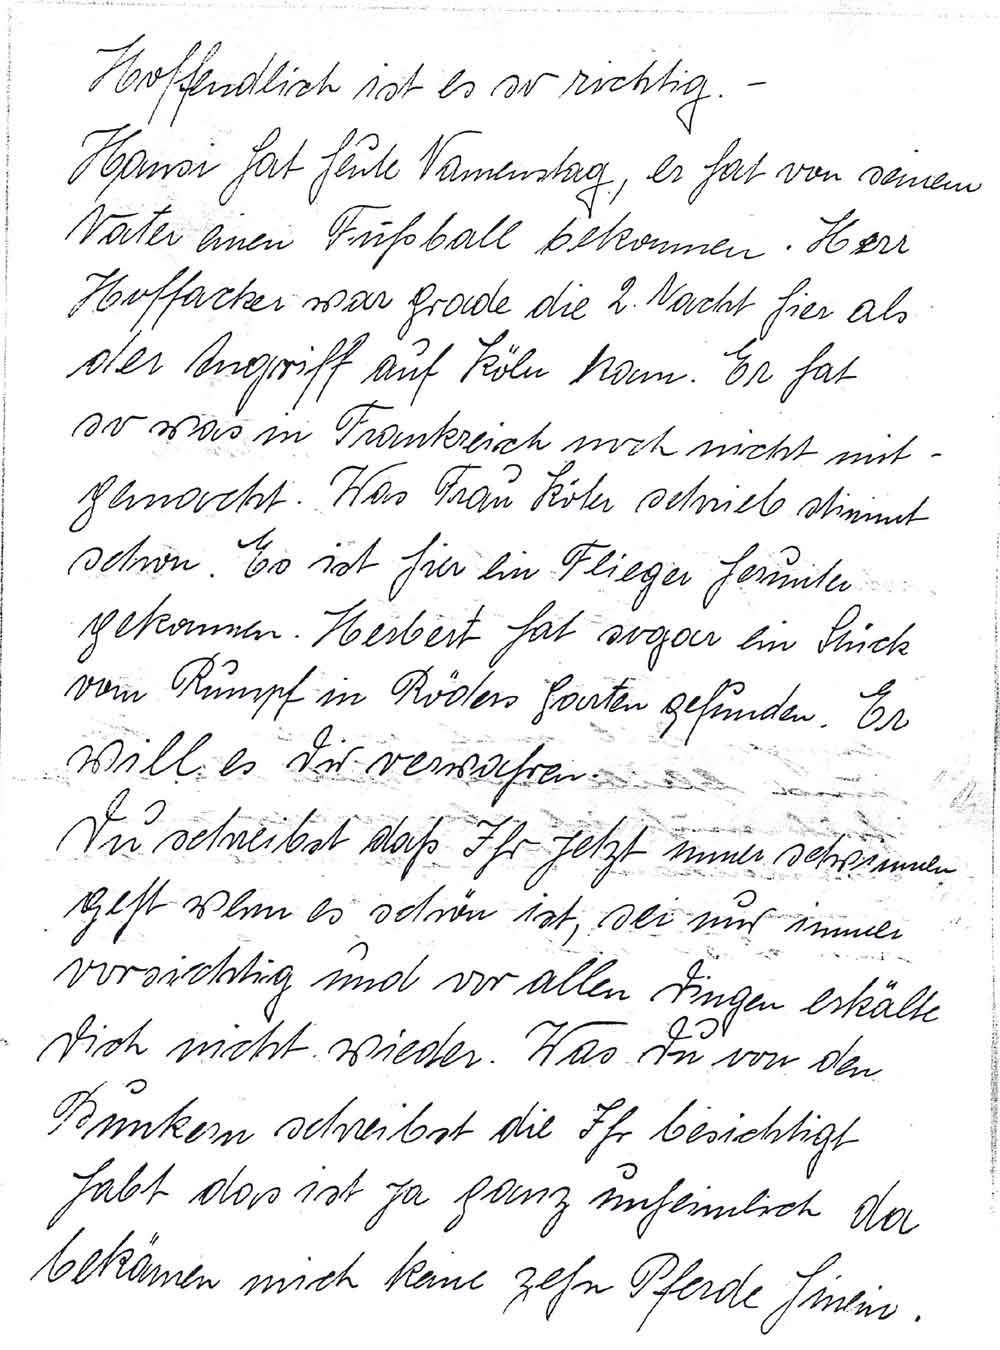 Hoffendlich ist es so richtig. –
Hansi hat heute Namenstag, er hat von seinem
Vater einen Fußball bekommen. Herr
Hoffacker war grade die 2. Nacht hier als
der Angriff auf Köln kam. Er hat
so was in Frankreich noch nicht mit-
gemacht. Was Frau Köter schrieb stimmt
schon. Es ist hier ein Flieger herunter
gekommen. Herbert hat sogar ein Stück
vom Rumpf in Röders Garten gefunden. Er
will es Dir verwahren.
Du schreibst daß Ihr jetzt immer schwimmen
geht wenn es schön ist, sei nur immer
vorsichtig und vor allen Dingen erkälte
Dich nicht wieder. Was Du von den
Bunkern schreibst die Ihr besichtigt
habt das ist ja ganz unheimlich da
bekämen mich keine zehn Pferde hinein.